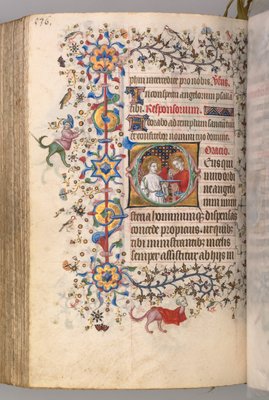 phim intercedite pro nobis. Vsus.
In conspectu angelorum psallā
tibi. Responsorium.
Adorabo ad templum sanctum
et confitebor nomini tuo domine.
Oratio.
Deus qui
miro ordi
ne angelo
rum mini
steria hominumq; dispensas
concede propicius. ut quib;
tibi ministrantib; in celo
semper assistitur ab hijs in